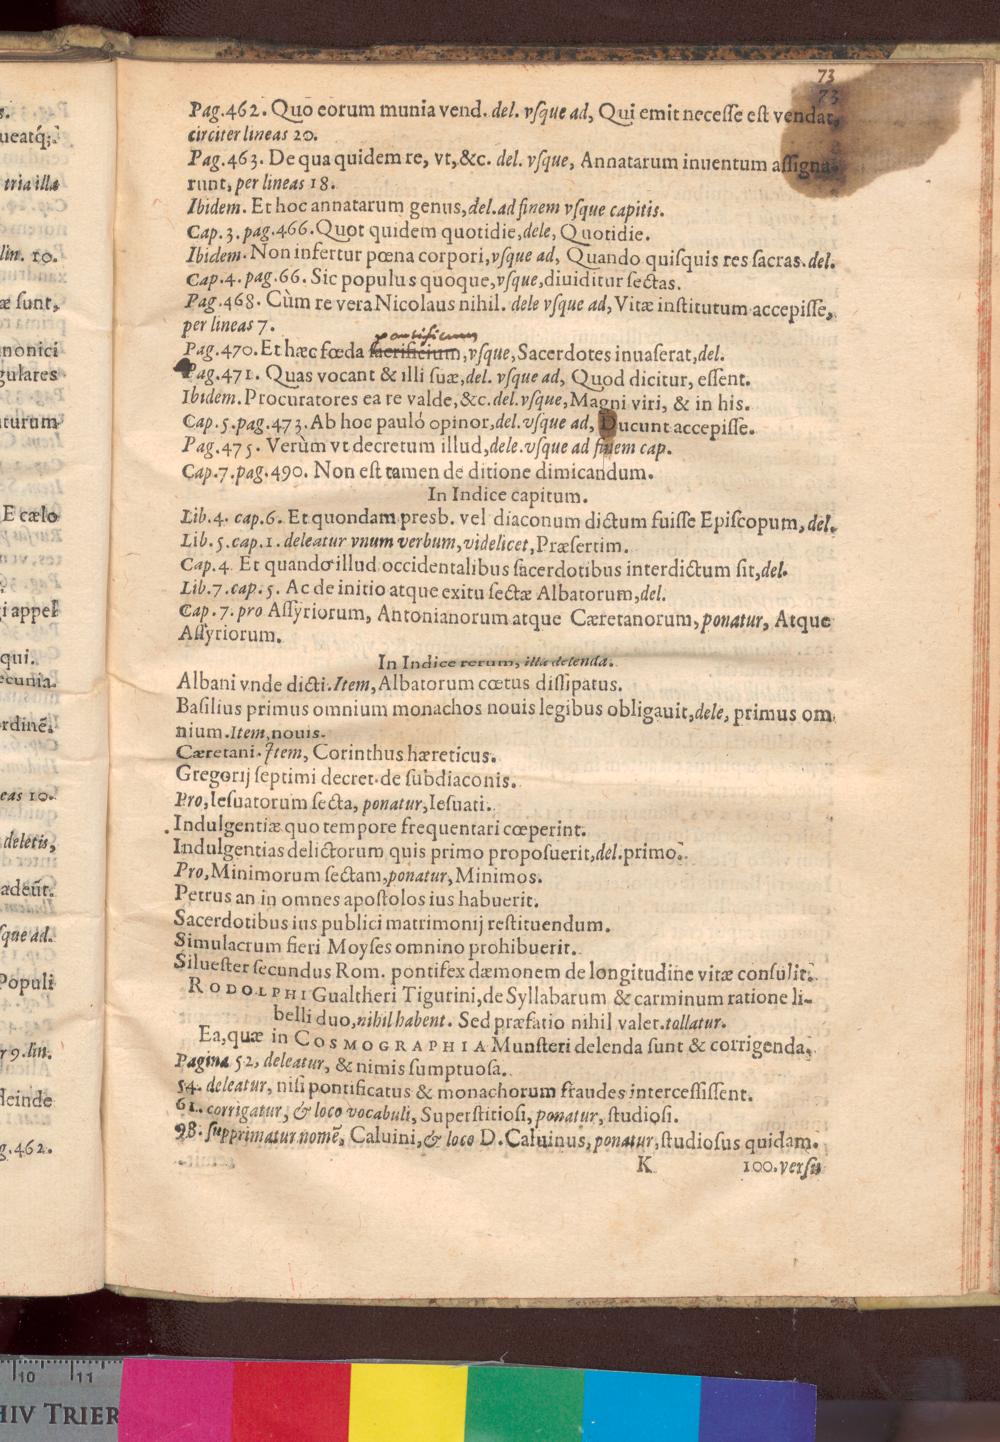 73
73
Pag.462. Quo eorum munia vend. del. vſque ad, Qui emit neceſſe eſt vendat,
circiter lineas 20.
Pag.463. De qua quidem re, vt,&c. del. vſque, Annatarum inuentum aſſigna-
runt, per lineas 18.
Ibidem. Et hoc annatarum genus, del. ad finem vſque capitis.
Cap.3.pag.466. Quot quidem quotidie, dele, Quotidie.
Ibidem. Non infertur pœna corpori, vſque ad, Quando quiſquis res ſacras. del.
Cap.4.pag.66. Sic populus quoque, vſque, diuiditur ſectas.
Pag.468. Cùm re vera Nicolaus nihil. dele vſque ad, Vitæ inſtitutum accepiſſe,
per lineas 7.
pontificum
Pag.470. Et hæc fœda ſacrificium, vſque, Sacerdotes inuaſerat, del.
Pag.471. Quas vocant & illi ſuæ, del. vſque ad, Quod dicitur, eſſent.
Ibidem. Procuratores ea re valde, &c. del. vſque, Magni viri, & in his.
Cap.5.pag.473. Ab hoc pauló opinor, del. vſque ad, Ducunt accepiſſe.
Pag.475. Verùm vt decretum illud, dele. vſque ad finem cap.
Cap.7.pag.490. Non eſt tamen de ditione dimicandum.
In Indice capitum.
Lib.4. cap.6. Et quondam presb. vel diaconum dictum fuiſſe Epiſcopum, del.
Lib.5.cap.1. deleatur vnum verbum, videlicet, Præſertim.
Cap.4. Et quando illud occidentalibus ſacerdotibus interdictum ſit, del.
Lib.7.cap.5. Ac de initio atque exitu ſectæ Albatorum, del.
Cap.7. pro Aſſyriorum, Antonianorum atque Cæretanorum, ponatur, Atque
Aſſyriorum.
In Indice rerum, illa delenda.
Albani vnde dicti. Item, Albatorum cœtus diſſipatus.
Baſilius primus omnium monachos nouis legibus obligauit, dele, primus om
nium. Item, nouis.
Cæretani. Item, Corinthus hæreticus.
Gregorij ſeptimi decret. de ſubdiaconis.
Pro, Ieſuatorum ſecta, ponatur, Ieſuati.
Indulgentiæ quo tempore frequentari cœperint.
Indulgentias delictorum quis primo propoſuerit, del. primo.
Pro, Minimorum ſectam, ponatur, Minimos.
Petrus an in omnes apoſtolos ius habuerit.
Sacerdotibus ius publici matrimonij reſtituendum.
Simulacrum fieri Moyſes omnino prohibuerit.
Silueſter ſecundus Rom. pontifex dæmonem de longitudine vitæ conſulit.
RODOLPHI Gualtheri Tigurini, de Syllabarum & carminum ratione li-
belli duo, nihil habent. Sed præfatio nihil valet. tollatur.
Ea, quæ in COSMOGRAPHIA Munſteri delenda ſunt & corrigenda.
Pagina 52, deleatur, & nimis ſumptuoſa.
54. deleatur, niſi pontificatus & monachorum fraudes interceſſiſſent.
61. corrigatur, & loco vocabuli, Superſtitioſi, ponatur, ſtudioſi.
98. ſupprimatur nomē, Caluini, & loco D. Caluinus, ponatur, ſtudioſus quidam.
K 100. verſu
ueatq́;
tria illa
lin. 10.
æ ſunt,
nonici
gulares
cturum
E cælo
gi appel
qui.
ecunia.
rdinē.
eas 10.
deletis,
ædeūt.
ſque ad.
Populi
r 9. lin.
deinde
g.462.
10 11
HIV TRIER